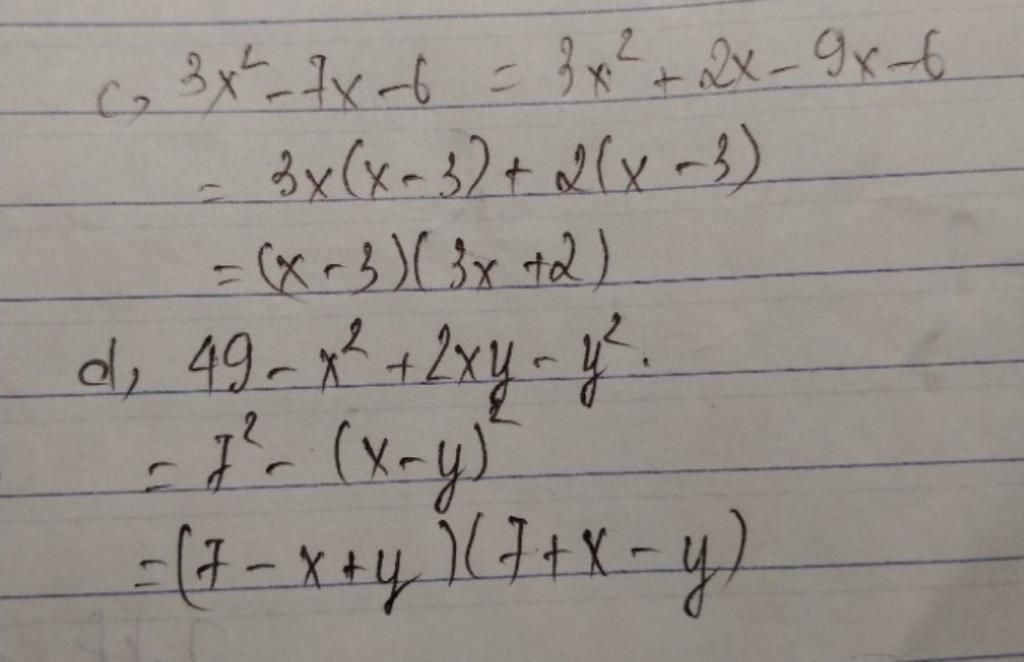 c, 3x² - 7x - 6 = 3x² + 2x - 9x - 6
= 3x(x - 3) + 2(x - 3)
= (x - 3)(3x + 2)
d, 49 - x² + 2xy - y².
= 7² - (x - y)²
= (7 - x + y)(7 + x - y)